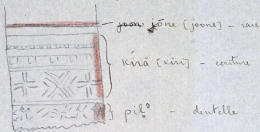 jōne [joone] – raie
kírā [xiri] – couture
pilº – dentelle